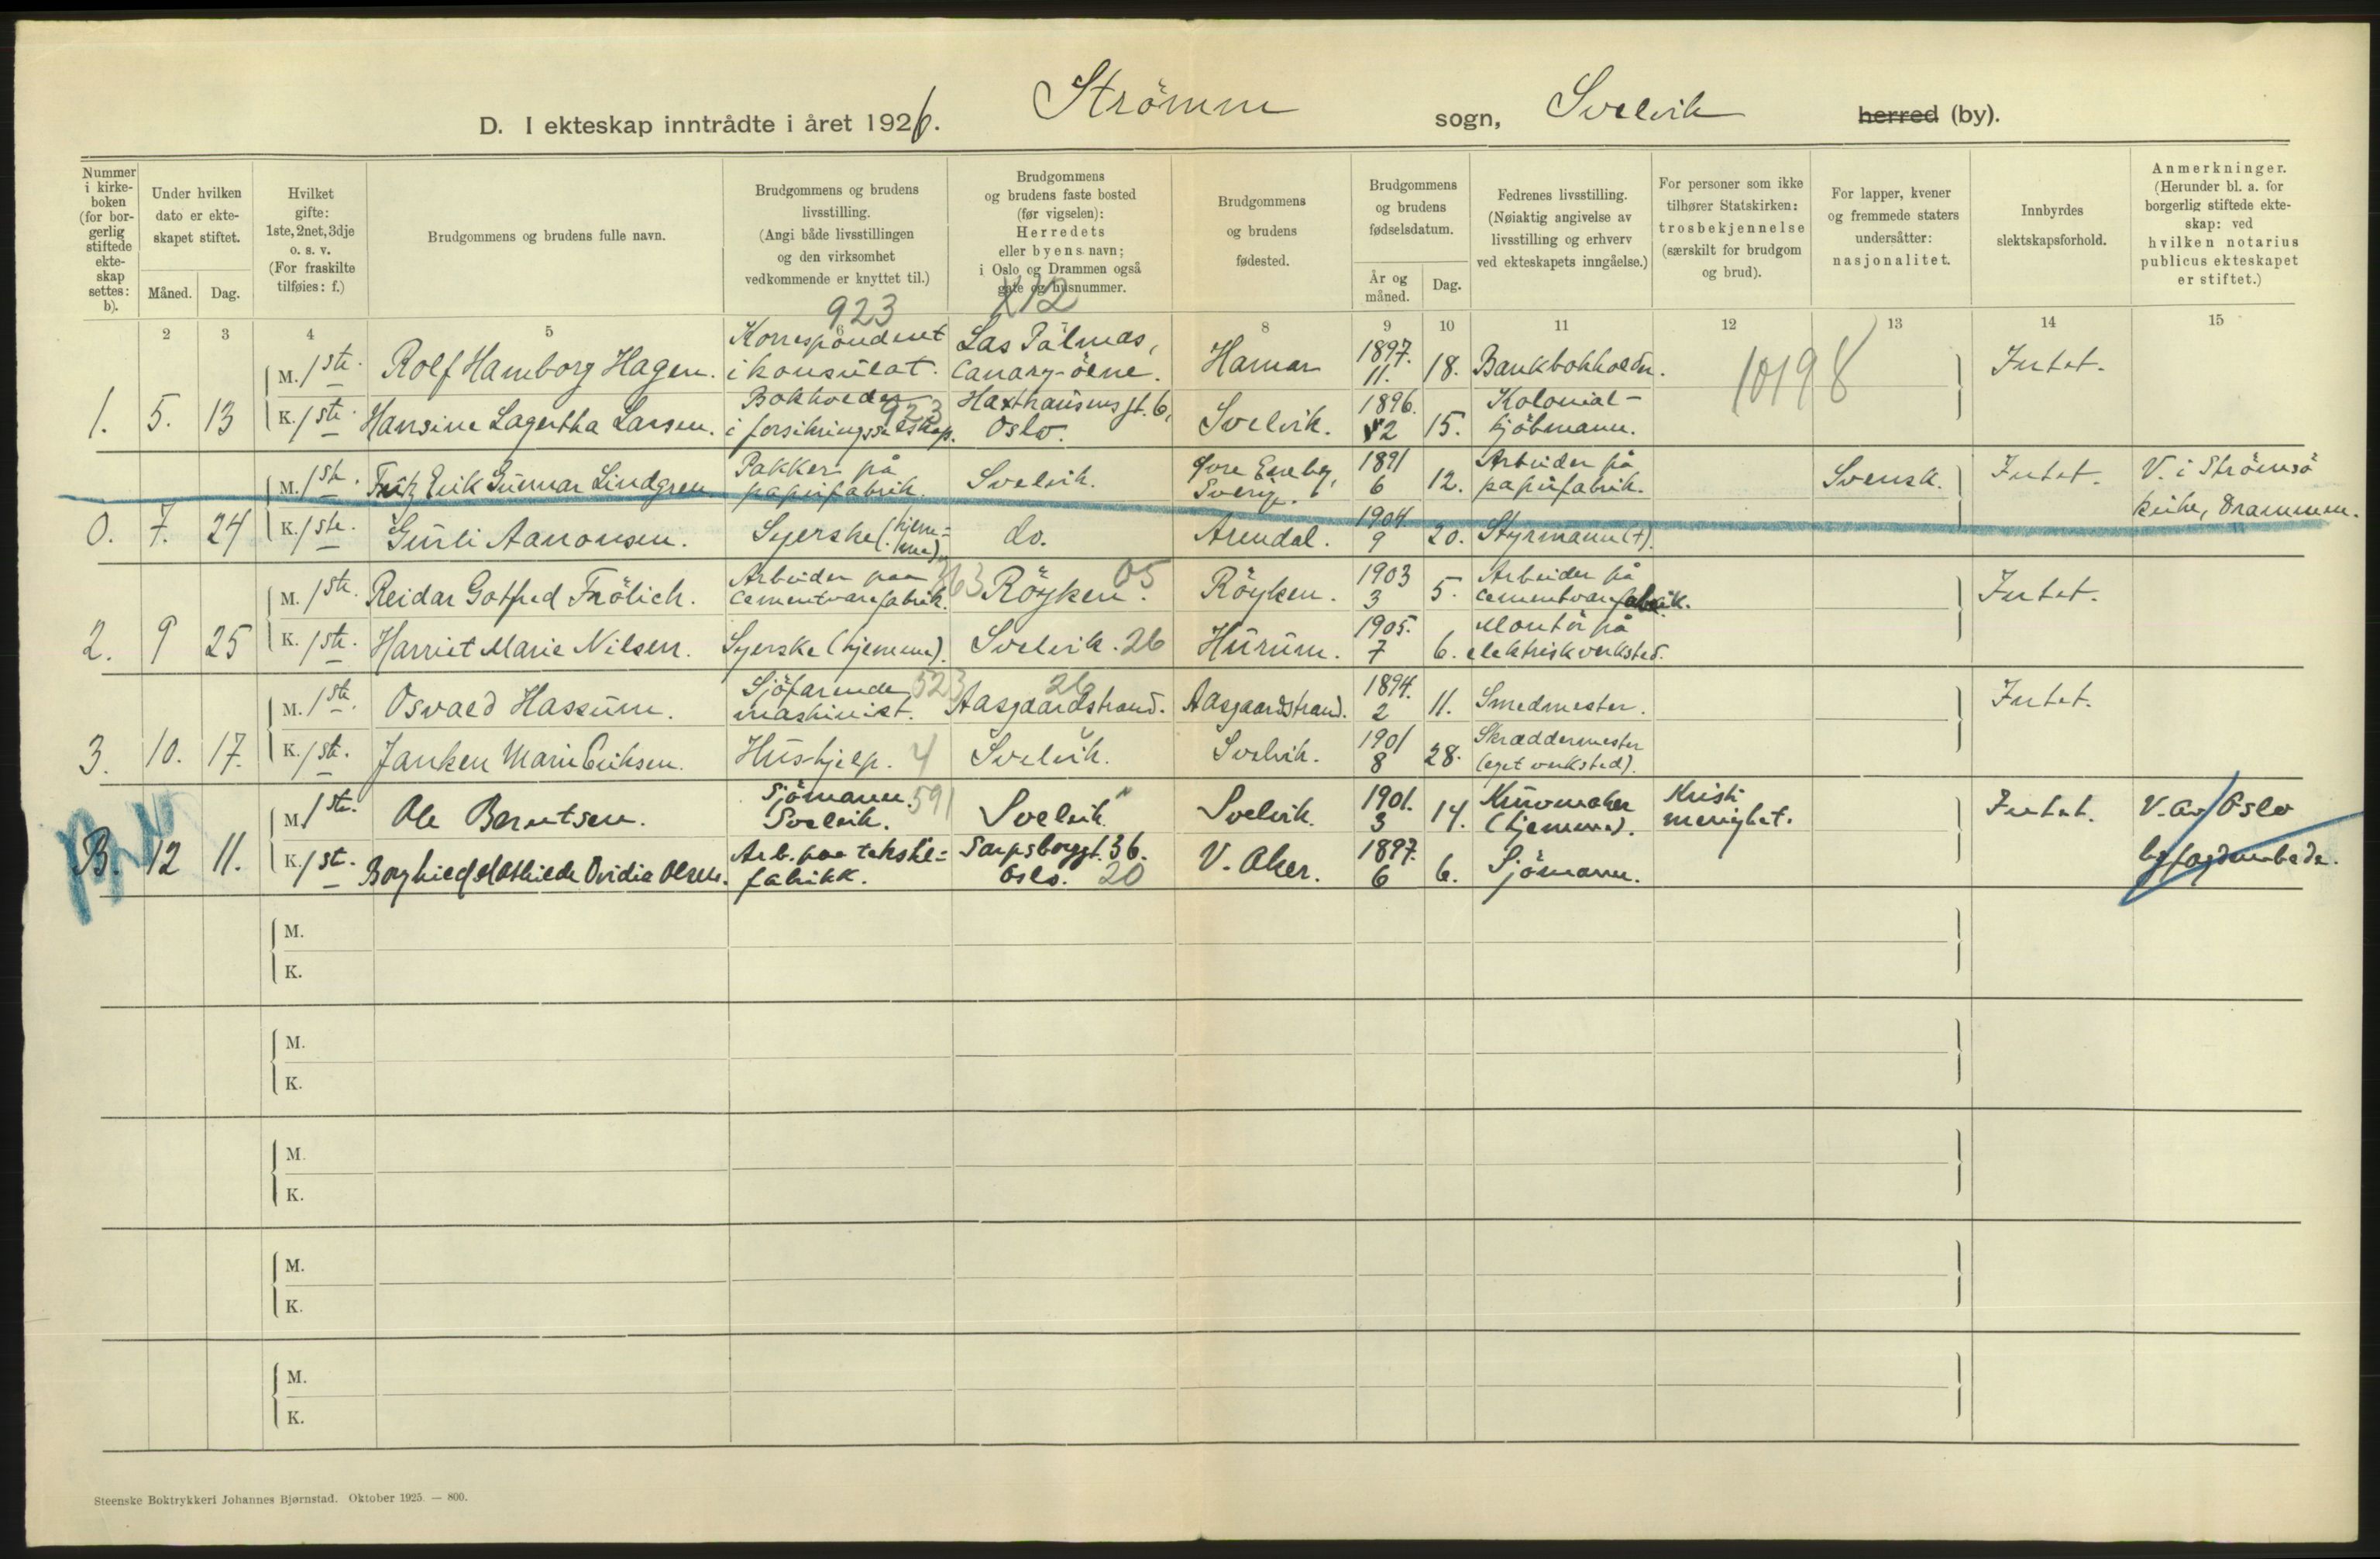 D. I ekteskap inntrådte i året 1926. Strömm sogn, Svelvik herred (by).
Nummer i kirke- boken (for bor- gerlig stiftede ekte- skap settes: b).
Under hvilken dato er ekte- skapet stiftet.
Måned. Dag.
Hvilket gifte: 1ste, 2net, 3dje o. s. v. (For fraskilte tilføies: f.)
Brudgommens og brudens fulle navn.
Brudgommens og brudens livsstilling. (Angi både livsstillingen og den virksomhet vedkommende er knyttet til.)
Brudgommens og brudens faste bosted (før vigselen): Herredets eller byens navn; i Oslo og Drammen også gate og husnummer.
Brudgommens og brudens fødested.
Brudgommens og brudens fødselsdatum.
År og måned. Dag.
Fedrenes livsstilling. (Nøiaktig angivelse av livsstilling og erhverv ved ekteskapets inngåelse.)
For personer som ikke tilhører Statskirken: trosbekjennelse (særskilt for brudgom og brud).
For lapper, kvener og fremmede staters undersåtter: nasjonalitet.
Innbyrdes slektskapsforhold.
Anmerkninger. (Herunder bl. a. for borgerlig stiftede ekte- skap: ved hvilken notarius publicus ekteskapet er stiftet.)
923 X12
2 3 4 5 6 8 9 10 11 12 13 14 15
M. 1ste. Rolf Hamborg Hagen. Korrespondent i konsulat. Las Palmas, Canary-öene. Hamar 1897. 11. 18. Bankbokholder. 10198 Intet.
1. 5. 13 K. 1ste. Hansine Lagertha Larsen. Bokholder i forsikringsselskap. 923 Haxthausens gt. 6, Oslo. Svelvik. 1896. 12 15. Kolonial- kjöbmann.
M. 1ste. Fritz Erik Gunnar Lindgren. Pakker på papirfabrik. Svelvik. Eneby, Sverige. 1891 6 12. Arbeider på papirfabrik. Svensk. Intet. V. i Strömsö kirke, Drammen.
0. 7. 24 K. 1ste. Gurli Aanonsen. Syerske (hjem- me) do. Arendal. 1904. 9 20. Styrmann (+).
M. 1ste. Reidar Gotfred Frölich. Arbeider paa cementvarefabrik. 63 Röyken. 05 Röyken. 1903 3 5. Arbeider på cementvarefabrik. Intet.
2. 9 25 K. 1ste. Harriet Marie Nilsen. Syerske (hjemme). Svelvik. 26 Hurum. 1905. 7 6. Montör på elektrisk verksted.
M. 1ste. Osvald Hassum. Sjöfarende maskinist. 523 Aasgaardstrand. 26 Aasgaardstrand. 1894. 2 11. Smedmester. Intet.
3. 10. 17. K. 1ste. Janken Marie Eriksen. Hushjelp. 4 Svelvik. Svelvik. 1901 8 28. Skræddermester (eget verksted).
M. 1ste. Ole Berntsen. Sjömann. Svelvik. 591 Svelvik. Svelvik. 1901. 3 14. Kurvmaker (hjemme). Kristi menighet. Intet. V. av Oslo byfogdembede.
B. 12 11. K. 1ste. Borghild Mathilde Ovidia Olsen. Arb. paa tekstil- fabrikk. Sarpsborggt. 36. Oslo. 20 V. Aker. 1897. 6 6. Sjömann.
M.
K.
M.
K.
M.
K.
M.
K.
M.
K.
Steenske Boktrykkeri Johannes Bjørnstad. Oktober 1925. — 800.